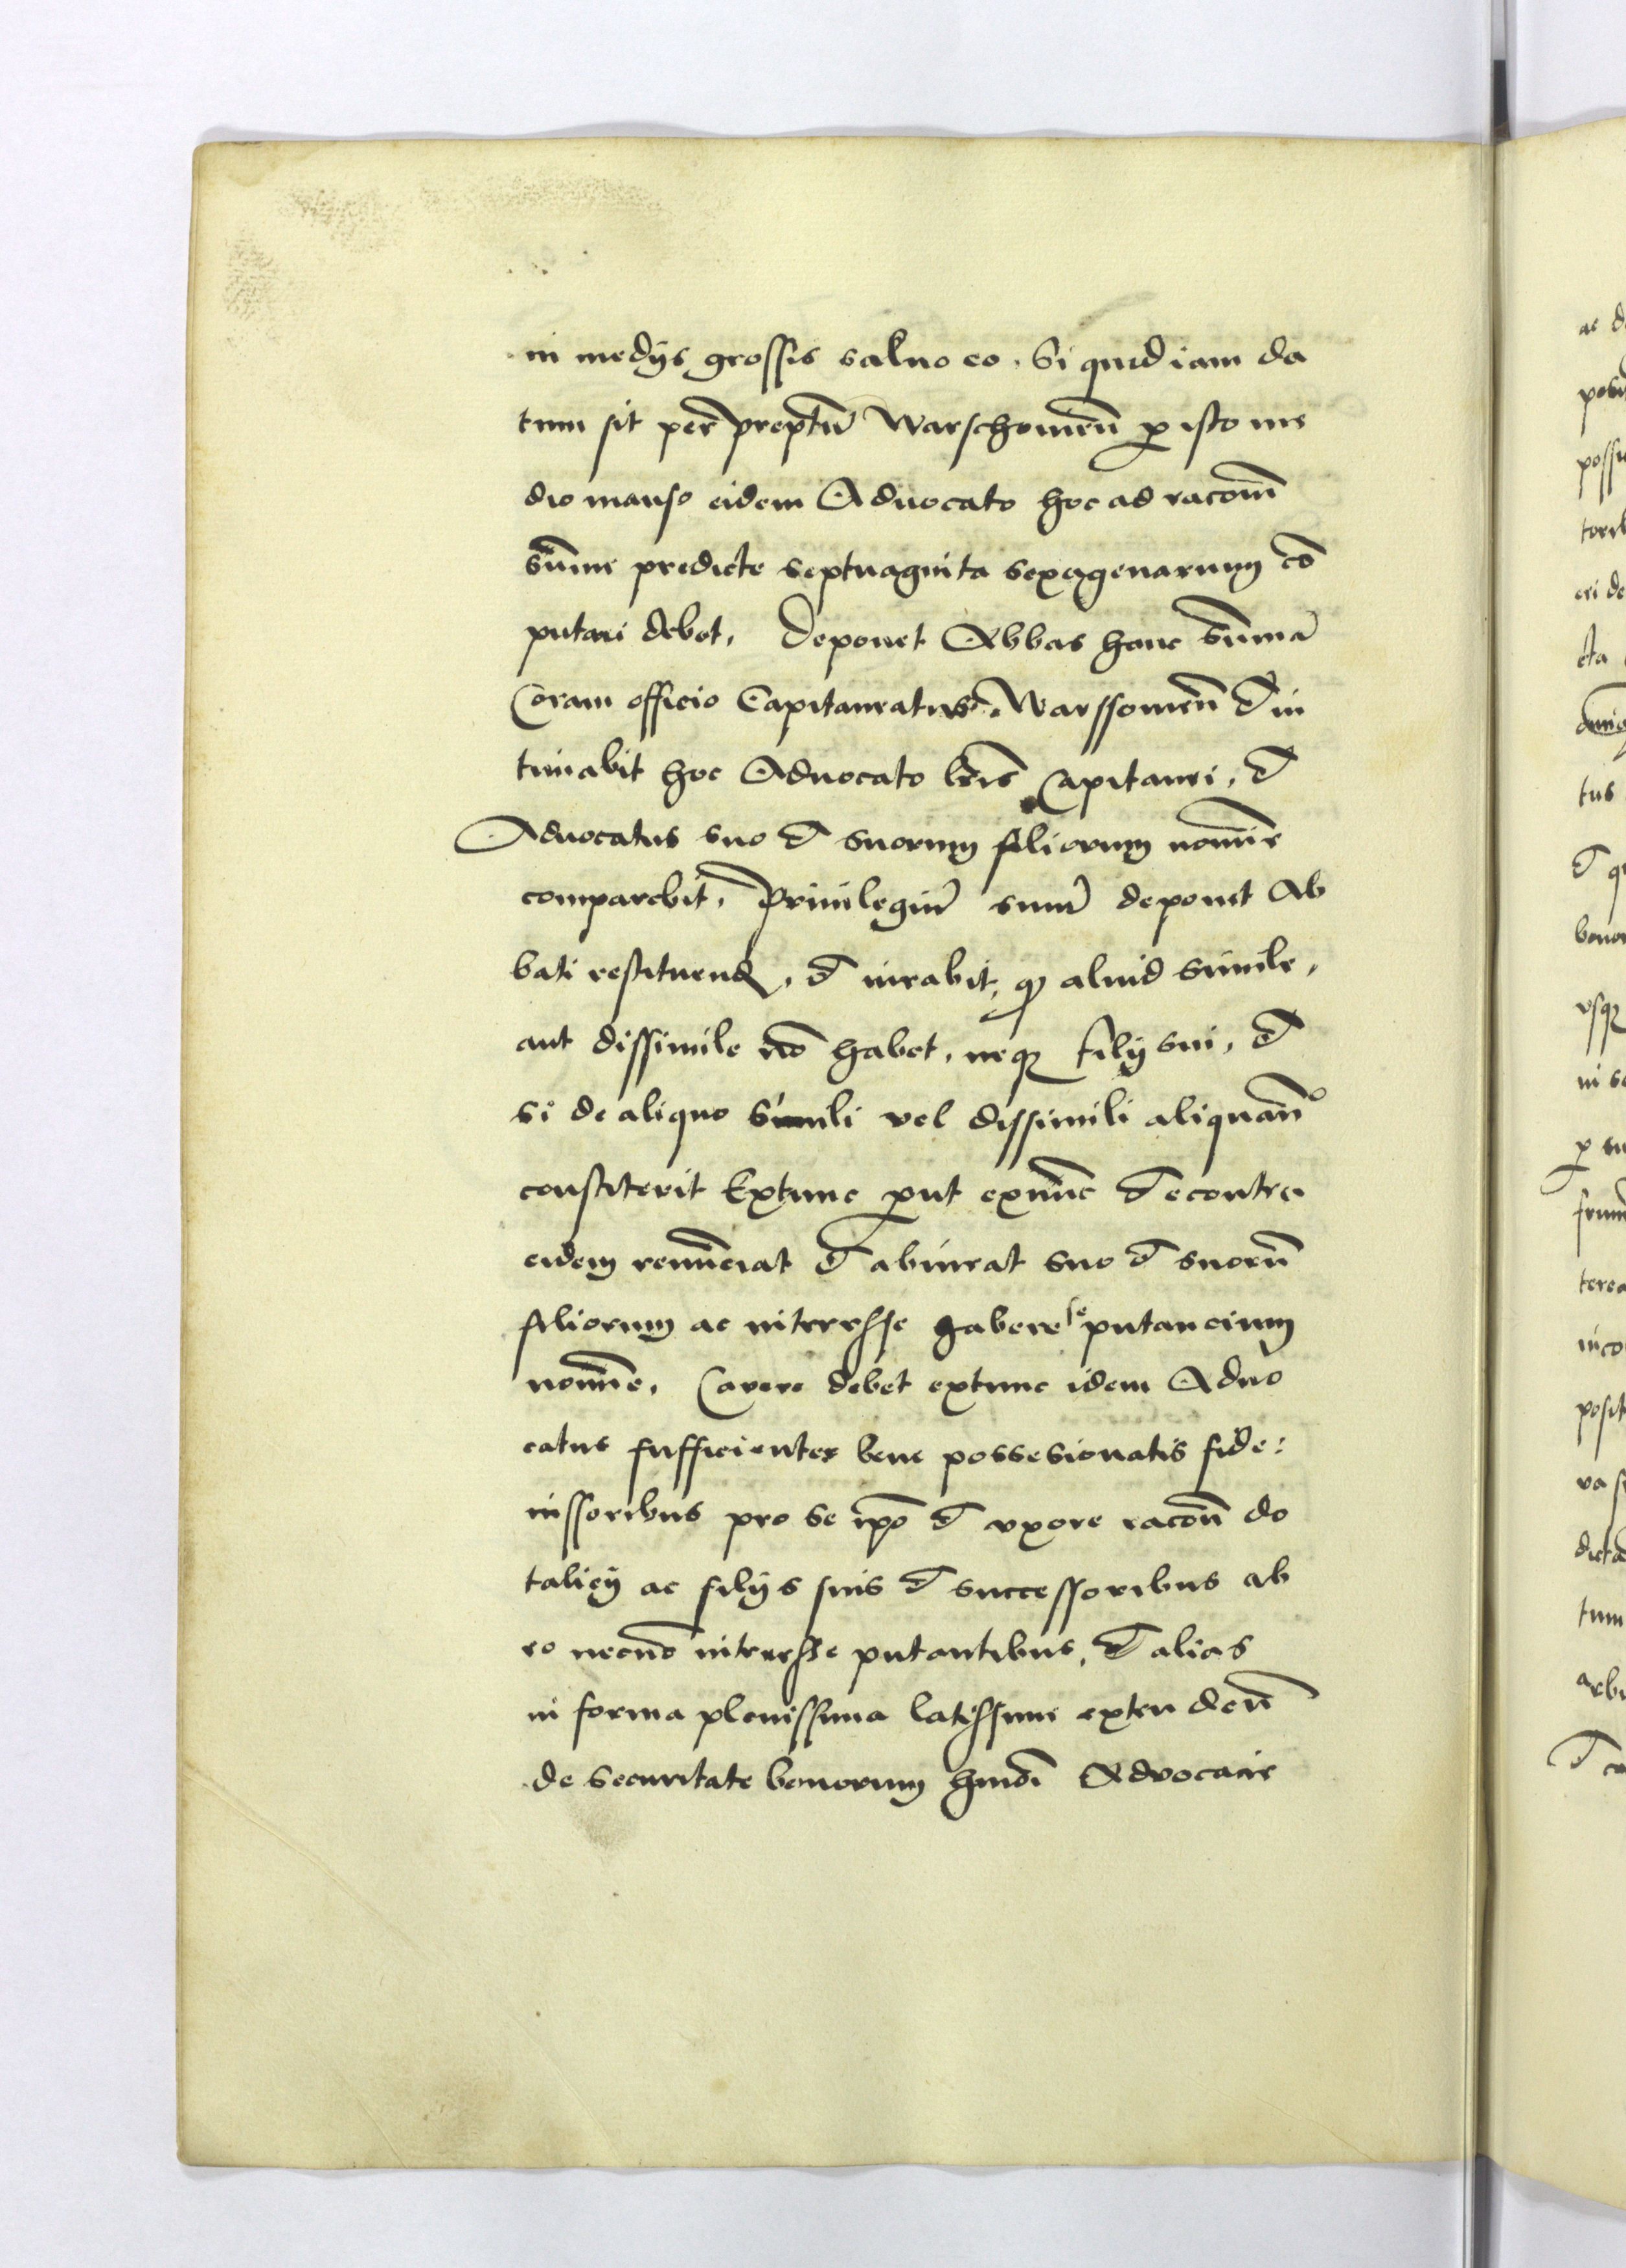 in medijs grossis saluo eo. Si quid iam da
tum sit per preptũ Warschouieñ p isto me
dio manso eidem Aduocato hoc ad racom̃
sum̃e predicte septuaginta sexagenarum cõ
putari debet. Deponet Abbas hanc summã
Coram officio Capitaneatus Warssouieñ et in
timabit hoc Aduocato lr̃is Capitanei, et
Aduocatus suo et suorum filiorum nomie
comparebit. Priuilegiũ suum deponet Ab
bati restituend, et iurabit, q aliud simile,
aut dissimile nõ habet, neq filij sui, et
si de aliquo simili vel dissimili aliquanõ
constiterit Extunc put exnunc et econtra
eidem renunciat et abiurat suo et suorũ
filiorum ac interesse habere se putancium
nomine. Cavere debet extunc idem Aduo
catus sufficienter bene possesionatis fide:
iussoribus pro se ip̃o et vxore racoñ do
talicij ac filijs suis et successoribus ab
eo necnõ interesse putantibus, et alias
in forma plenissima latissime extendeñ
de securitate bonorum hmõi Advocacie